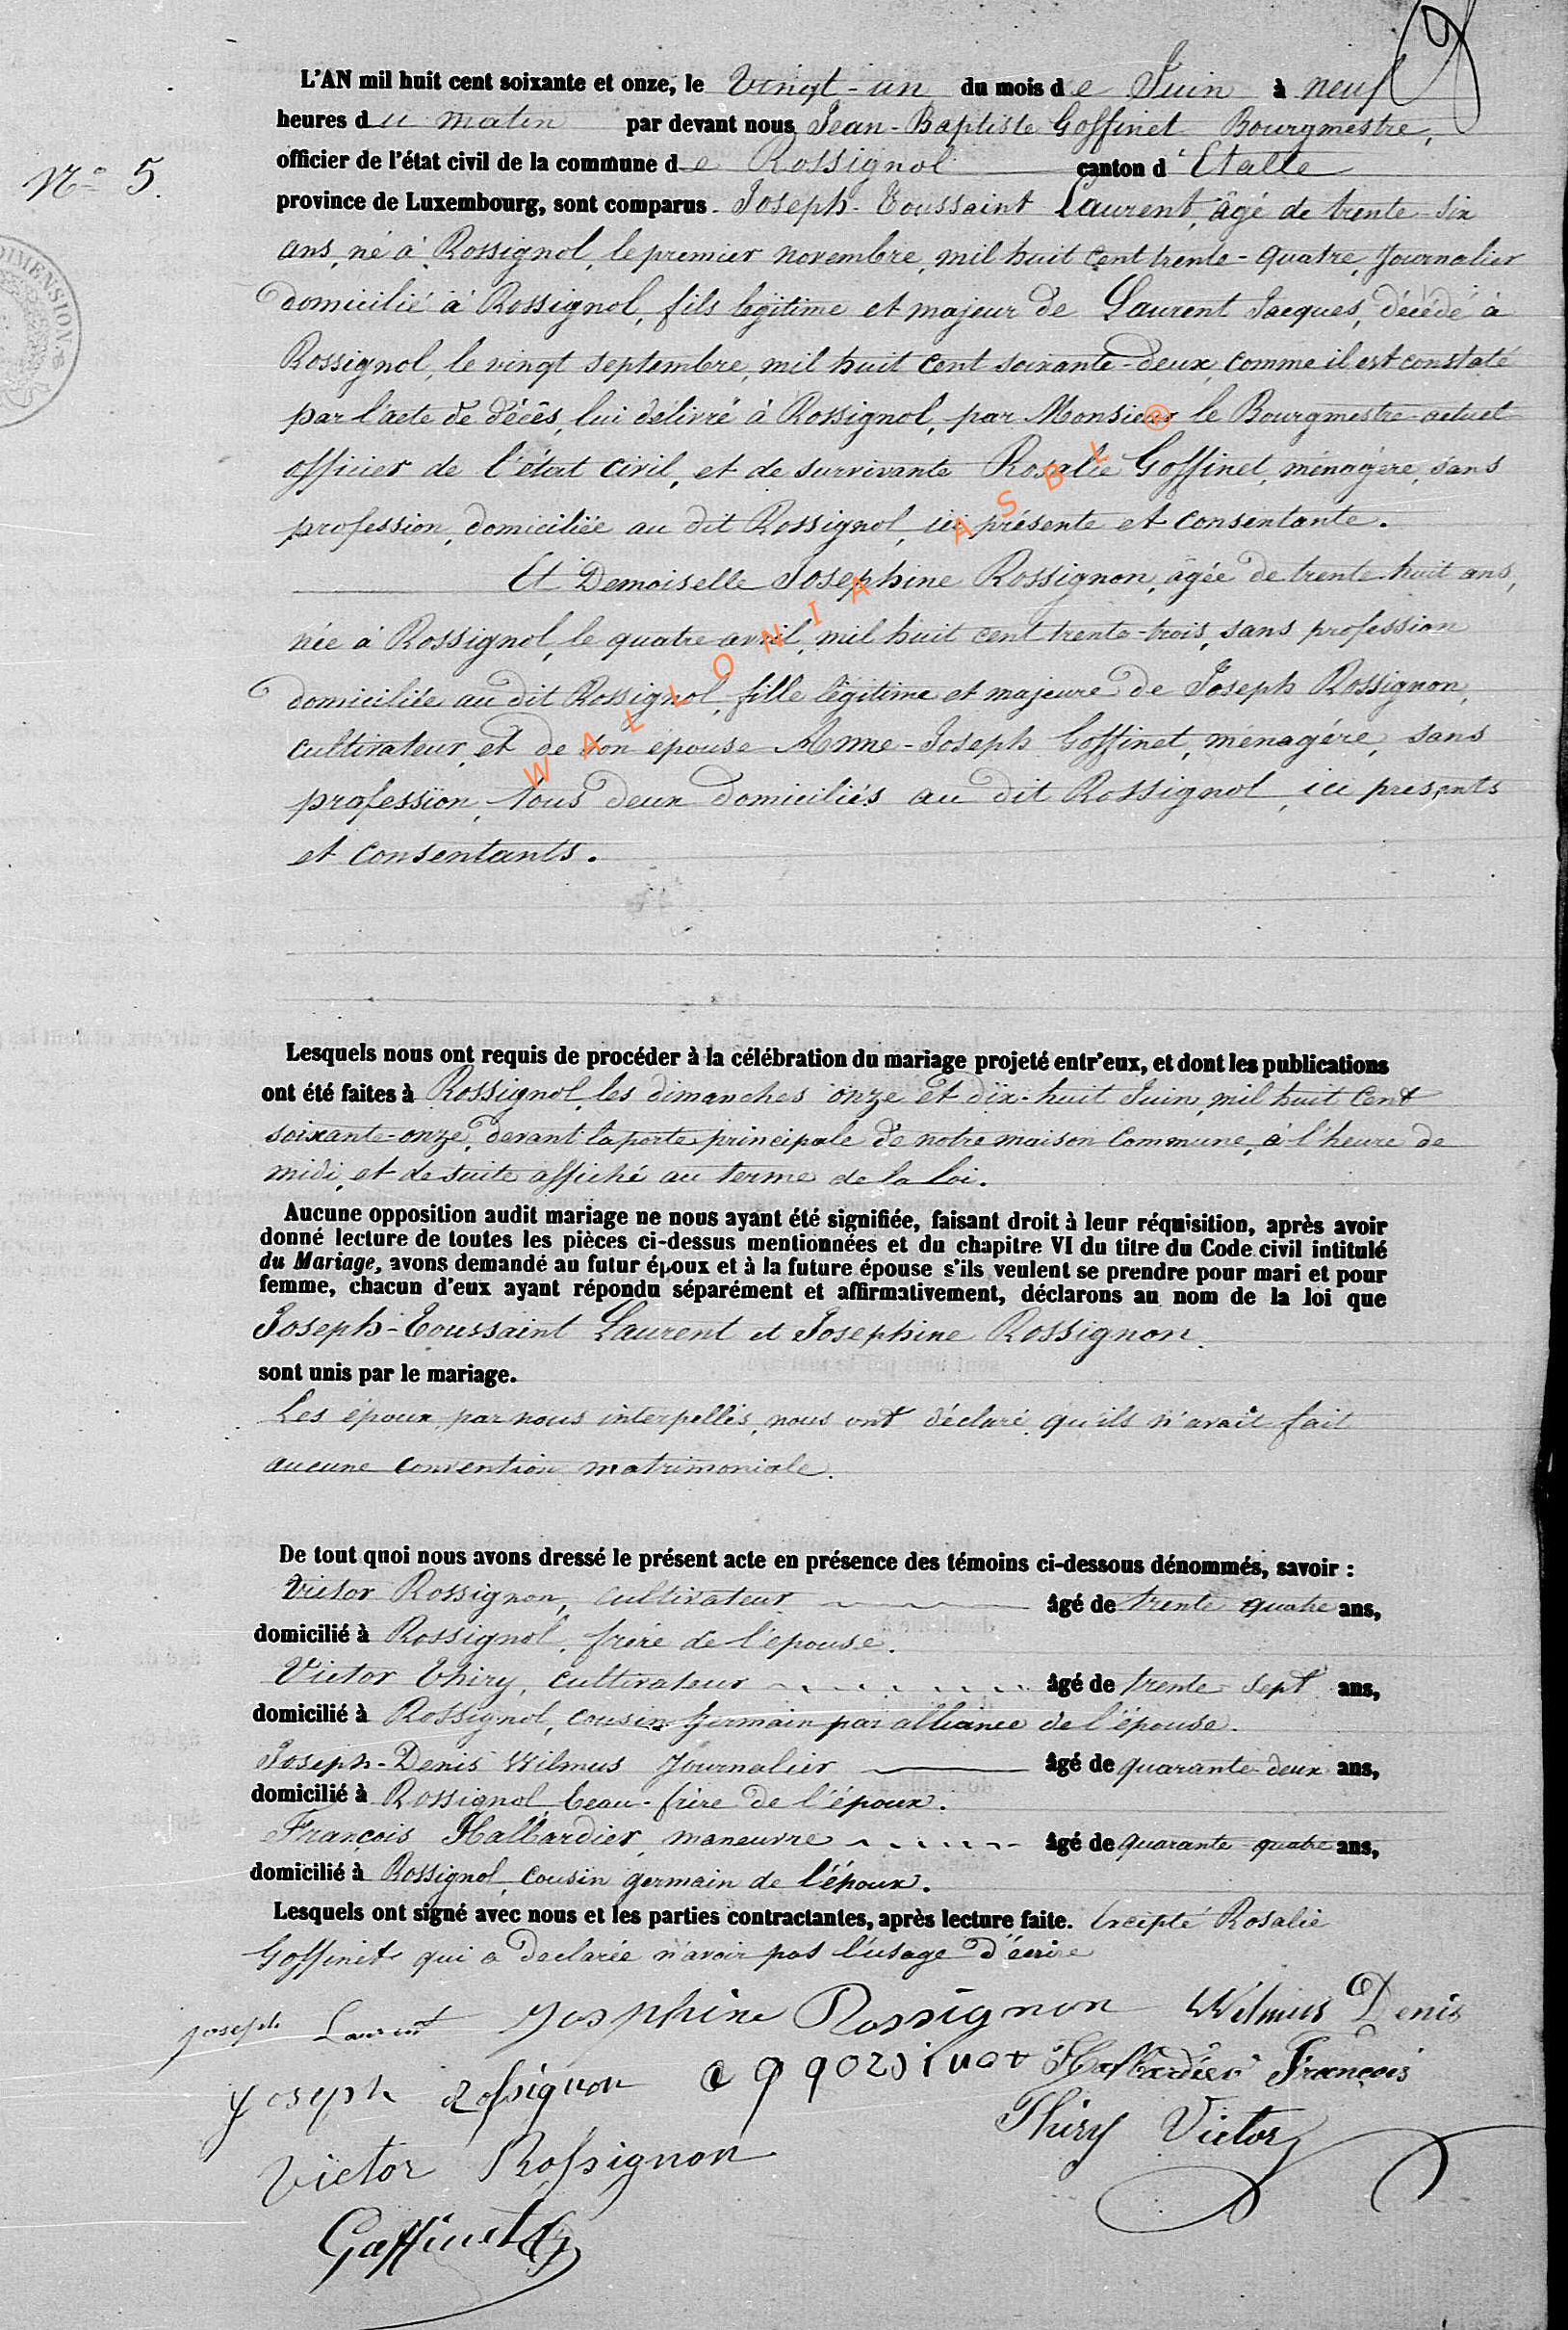 L'AN mil huit cent soixante et onze, le vingt-un du mois de Juin à neuf
heures du matin par devant nous Jean-Baptiste Goffinet Bourgmestre,
officier de l'état civil de la commune de Rossignol canton d'Etalle
N° 5.
province de Luxembourg, sont comparus Joseph-Toussaint Laurent, âgé de trente-six
ans, né à Rossignol, le premier novembre, mil huit cent trente-quatre, Journalier
domicilié à Rossignol, fils légitime et majeur de Laurent Jacques, décédé à
Rossignol, le vingt septembre, mil huit cent soixante-deux, comme il est constaté
par l'acte de décès, lui délivré à Rossignol, par Monsieur le Bourgmestre actuel
officier de l'état civil, et de survivante Rosalie Goffinet, ménagère, sans
profession, domiciliée au dit Rossignol, ici présente et consentante.
Et Demoiselle Josephine Rossignon, âgée de trente-huit ans,
née à Rossignol, le quatre avril, mil huit cent trente-trois, sans profession
domiciliée au dit Rossignol, fille légitime et majeure de Joseph Rossignon,
cultivateur, et de son épouse Anne-Joseph Goffinet, ménagère, sans
profession, tous deux domiciliés au dit Rossignol, ici présents
et consentants.
WALLONIA ASBL ®
Lesquels nous ont requis de procéder à la célébration du mariage projeté entr'eux, et dont les publications
ont été faites à Rossignol, les dimanches onze et dix-huit Juin, mil huit Cent
soixante-onze, devant la porte principale de notre maison Commune, à l'heure de
midi, et de suite affiché au terme de la loi.
Aucune opposition audit mariage ne nous ayant été signifiée, faisant droit à leur réquisition, après avoir
donné lecture de toutes les pièces ci-dessus mentionnées et du chapitre VI du titre du Code civil intitulé
du Mariage, avons demandé au futur époux et à la future épouse s'ils veulent se prendre pour mari et pour
femme, chacun d'eux ayant répondu séparément et affirmativement, déclarons au nom de la loi que
Joseph-Toussaint Laurent et Josephine Rossignon.
sont unis par le mariage.
Les époux, par nous interpellés, nous ont déclaré qu'ils n'avait fait
aucune convention matrimoniale.
De tout quoi nous avons dressé le présent acte en présence des témoins ci-dessous dénommés, savoir :
Victor Rossignon, cultivateur âgé de trente quatre ans,
domicilié à Rossignol, frère de l'épouse.
Victor Thiry, cultivateur âgé de trente-sept ans,
domicilié à Rossignol, cousin germain par alliance de l'épouse.
Joseph-Denis Wilmus Journalier âgé de quarante-deux ans,
domicilié à Rossignol, beau-frère de l'époux.
François Hallardier, maneuvre âgé de quarante quatre ans,
domicilié à Rossignol, cousin germain de l'époux.
Lesquels ont signé avec nous et les parties contractantes, après lecture faite. Excepté Rosalie
Goffinet qui a declarée n'avoir pas l'usage d'écrire
Joseph Laurent Josphine Rossignon Wilmus Denis
Joseph Rossignon Hallardier François
Thiry Victor
Victor Rossignon
Goffinet